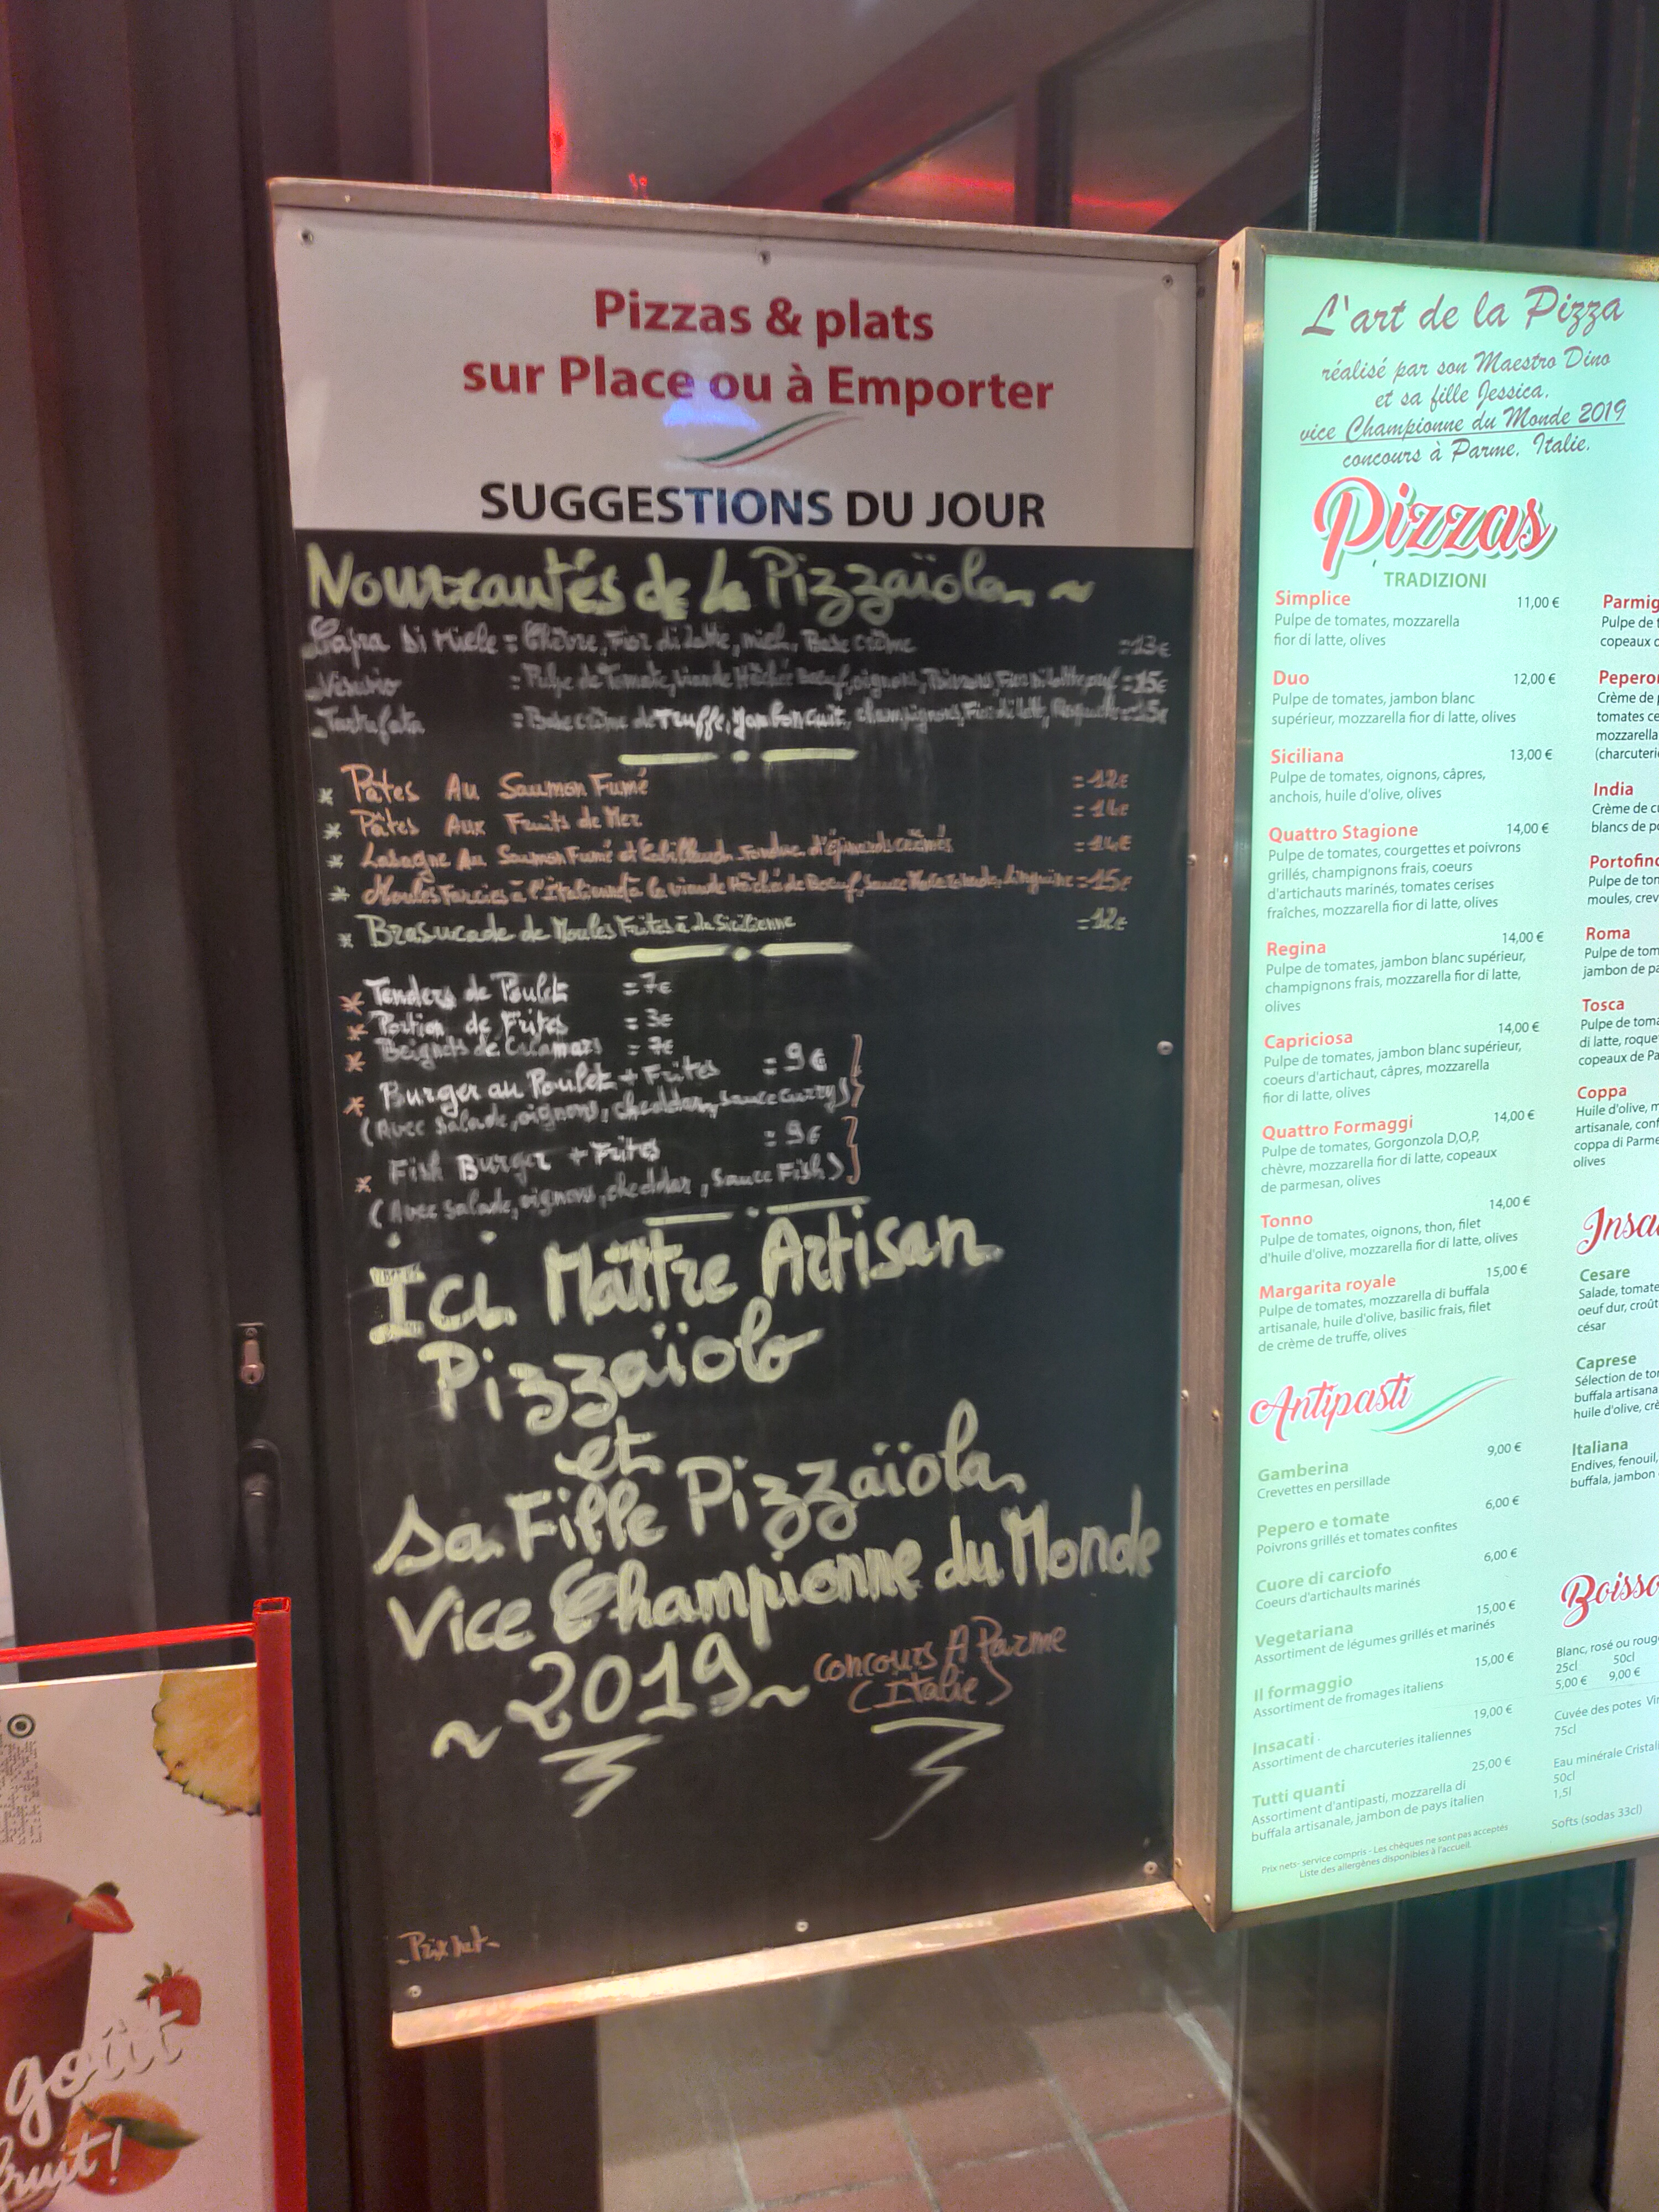 Pizzas & plats
sur Place ou à Emporter
SUGGESTIONS DU JOUR
Nouveautés de la Pizzaïola ~
Capra Di Miele = Chèvre, Fior di latte, miel, Base crème =13€
Vesuvio = Pulpe de Tomate, viande Hâchée Boeuf, oignons, Poivrons, Fior di latte, œuf =15€
Tartufata = Base crème de Truffe, Jambon cuit, champignons, Fior di latte, Roquette =15€
* Pâtes Au Saumon Fumé =12€
* Pâtes Aux Fruits de Mer =14€
* Lasagne Au Saumon Fumé et Cabillaud Fondue d'épinards crèmés =14€
* Moules Farcies à l'Italienne à la viande Hâchée de Boeuf, Sauce Tomate, Linguine =15€
* Brasucade de Moules Frites à la Sicilienne =12€
* Tenders de Poulet =7€
* Portion de Frites =3€
* Beignets de Calamars =7€
* Burger au Poulet + Frites =9€
(Avec salade, oignons, cheddar, sauce curry)
* Fish Burger + Frites =9€
(Avec salade, oignons, cheddar, sauce Fish)
Ici Maître Artisan
Pizzaïolo
et
sa Fille Pizzaïola
Vice Championne du Monde
~ 2019 ~
concours A Parme
(Italie)
-Prix net-
L'art de la Pizza
réalisé par son Maestro Dino
et sa fille Jessica,
vice Championne du Monde 2019
concours à Parme, Italie.
Pizzas
TRADIZIONI
Simplice 11,00 €
Pulpe de tomates, mozzarella
fior di latte, olives
Duo 12,00 €
Pulpe de tomates, jambon blanc
supérieur, mozzarella fior di latte, olives
Siciliana 13,00 €
Pulpe de tomates, oignons, câpres,
anchois, huile d'olive, olives
Quattro Stagione 14,00 €
Pulpe de tomates, courgettes et poivrons
grillés, champignons frais, coeurs
d'artichauts marinés, tomates cerises
fraîches, mozzarella fior di latte, olives
Regina 14,00 €
Pulpe de tomates, jambon blanc supérieur,
champignons frais, mozzarella fior di latte,
olives
Capriciosa 14,00 €
Pulpe de tomates, jambon blanc supérieur,
coeurs d'artichaut, câpres, mozzarella
fior di latte, olives
Quattro Formaggi 14,00 €
Pulpe de tomates, Gorgonzola D,O,P,
chèvre, mozzarella fior di latte, copeaux
de parmesan, olives
Tonno 14,00 €
Pulpe de tomates, oignons, thon, filet
d'huile d'olive, mozzarella fior di latte, olives
Margarita royale 15,00 €
Pulpe de tomates, mozzarella di buffala
artisanale, huile d'olive, basilic frais, filet
de crème de truffe, olives
Antipasti
Gamberina 9,00 €
Crevettes en persillade
Pepero e tomate 6,00 €
Poivrons grillés et tomates confites
Cuore di carciofo 6,00 €
Coeurs d'artichaults marinés
Vegetariana 15,00 €
Assortiment de légumes grillés et marinés
Il formaggio 15,00 €
Assortiment de fromages italiens
Insacati 19,00 €
Assortiment de charcuteries italiennes
Tutti quanti 25,00 €
Assortiment d'antipasti, mozzarella di
buffala artisanale, jambon de pays italien
Prix nets- service compris - Les chèques ne sont pas acceptés
Liste des allergènes disponibles à l'accueil.
Parmig
Pulpe de t
copeaux d
Pepero
Crème de p
tomates ce
mozzarella
(charcuteri
India
Crème de cu
blancs de po
Portofino
Pulpe de tom
moules, crev
Roma
Pulpe de tom
jambon de pa
Tosca
Pulpe de toma
di latte, roque
copeaux de Pa
Coppa
Huile d'olive, m
artisanale, conf
coppa di Parme
olives
Insa
Cesare
Salade, tomate
oeuf dur, croût
césar
Caprese
Sélection de to
buffala artisana
huile d'olive, crè
Italiana
Endives, fenouil,
buffala, jambon
Boisso
Blanc, rosé ou roug
25cl 50cl
5,00 € 9,00 €
Cuvée des potes Vi
75cl
Eau minérale Cristal
50cl
1,5l
Softs (sodas 33cl)
goût
fruit!